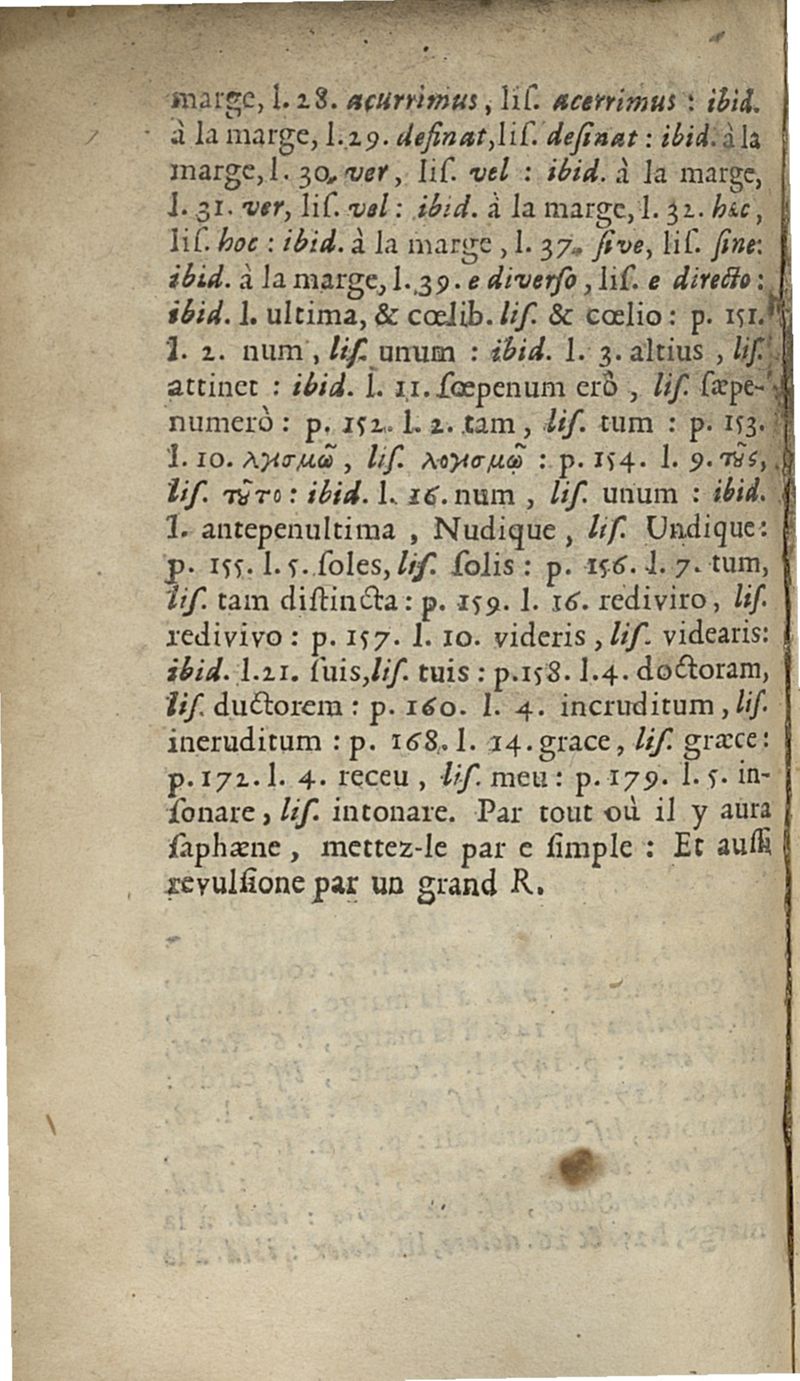 marge, l. 28. acurrimus, lis. acerrimus : ibid.
à la marge, l. 29. definat, lis. desinat : ibid. à la
marge, l. 30. ver, lis. vel : ibid. à la marge,
l. 31. ver, lis. vel : ibid. à la marge, l. 32. hæc,
lis. hoc : ibid. à la marge, l. 37. sive, lis. sine:
ibid. à la marge, l. 39. e diverso, lis. e directo :
ibid. l. ultima, & cœlib. lis. & cœlio : p. 151.
l. 2. num, lis. unum : ibid. l. 3. altius, lis.
attinet : ibid. l. 11. sœpenum erò, lis. sæpe-
numerò : p. 152. l. 2. tam, lis. tum : p. 153.
l. 10. λγισμῷ, lis. λογισμῷ : p. 154. l. 9. τȣ͂ς,
lis. τȣ͂το : ibid. l. 16. num, lis. unum : ibid.
l. antepenultima, Nudique, lis. Undique:
p. 155. l. 5. soles, lis. solis : p. 156. l. 7. tum,
lis. tam distincta : p. 159. l. 16. rediviro, lis.
redivivo : p. 157. l. 10. videris, lis. videaris:
ibid. l. 21. suis, lis. tuis : p. 158. l. 4. doctoram,
lis. ductorem : p. 160. l. 4. incruditum, lis.
ineruditum : p. 168. l. 14. grace, lis. græce:
p. 172. l. 4. receu, lis. meu : p. 179. l. 5. in-
sonare, lis. intonare. Par tout où il y aura
saphæne, mettez-le par e simple : Et aussi
revulsione par un grand R.